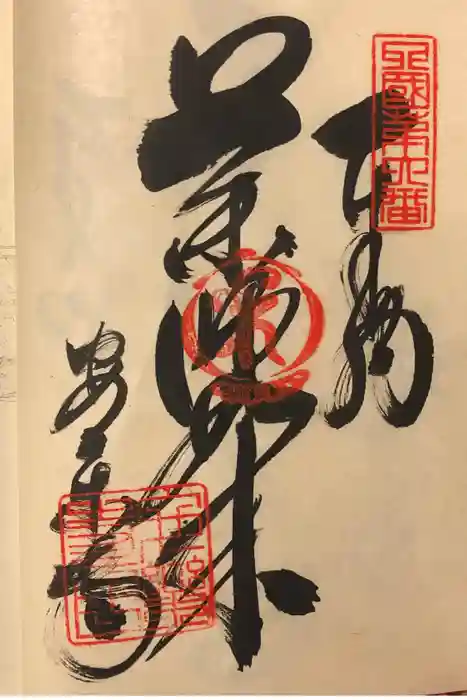 四國第六番
奉納
薬師如来
安楽寺